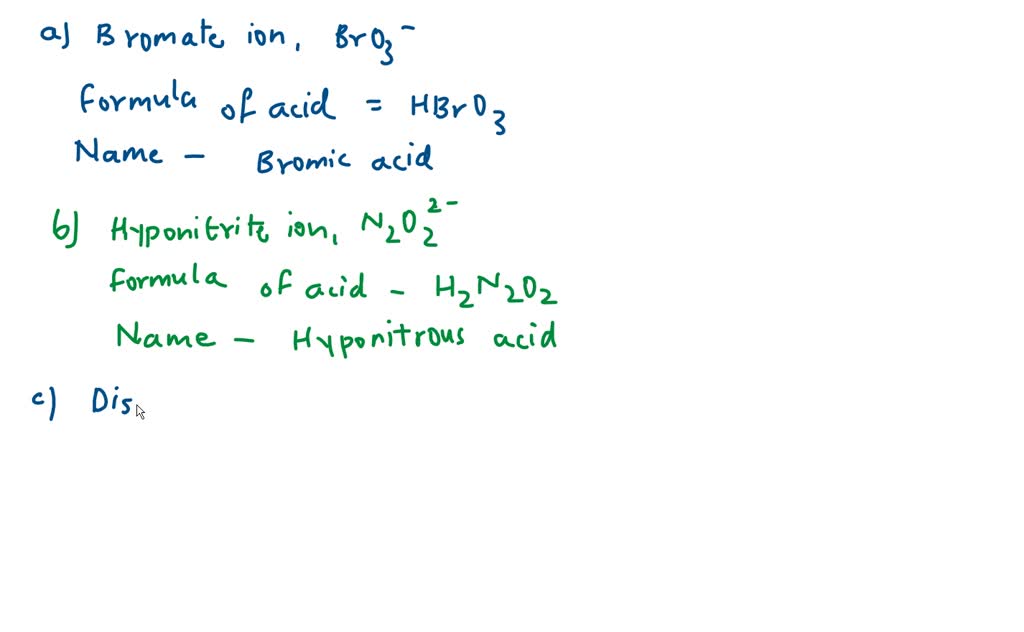 a) Bromate ion, BrO₃⁻
Formula of acid = HBrO₃
Name – Bromic acid
b) Hyponitrite ion, N₂O₂²⁻
Formula of acid – H₂N₂O₂
Name – Hyponitrous acid
c) Dis